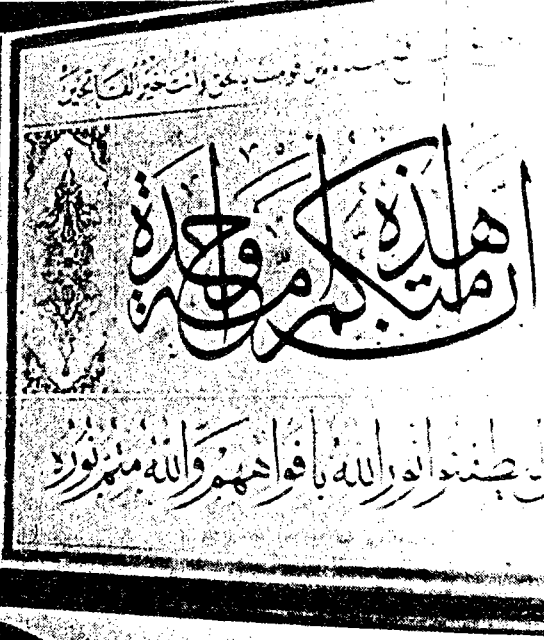 بين قومنا بالحق وانت خير الفاتحين
ان هذه امتكم امة واحدة
ليطفئوا نور الله بافواههم والله متم نوره